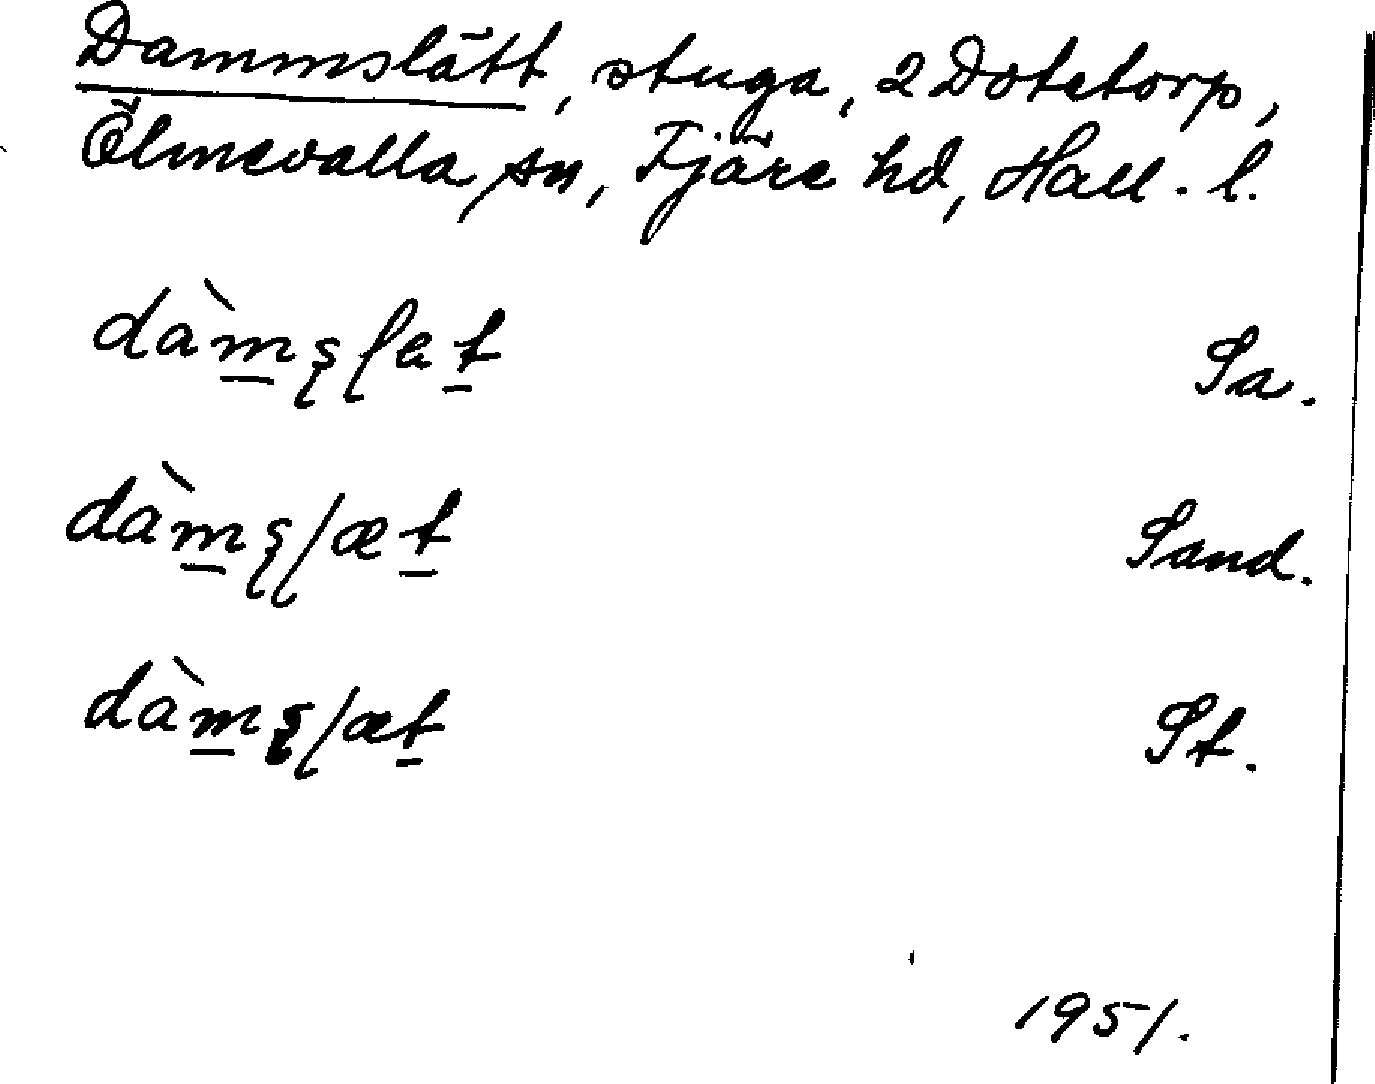 Dammslätt, stuga, 2 Dotetorp,
Ölmevalla sn, Fjäre hd, Hall. l.
dàm̲ʂɭet̲ Sa.
dàm̲ʂɭæt̲ Sand.
dàm̲ʂɭæt̲ St.
1951.